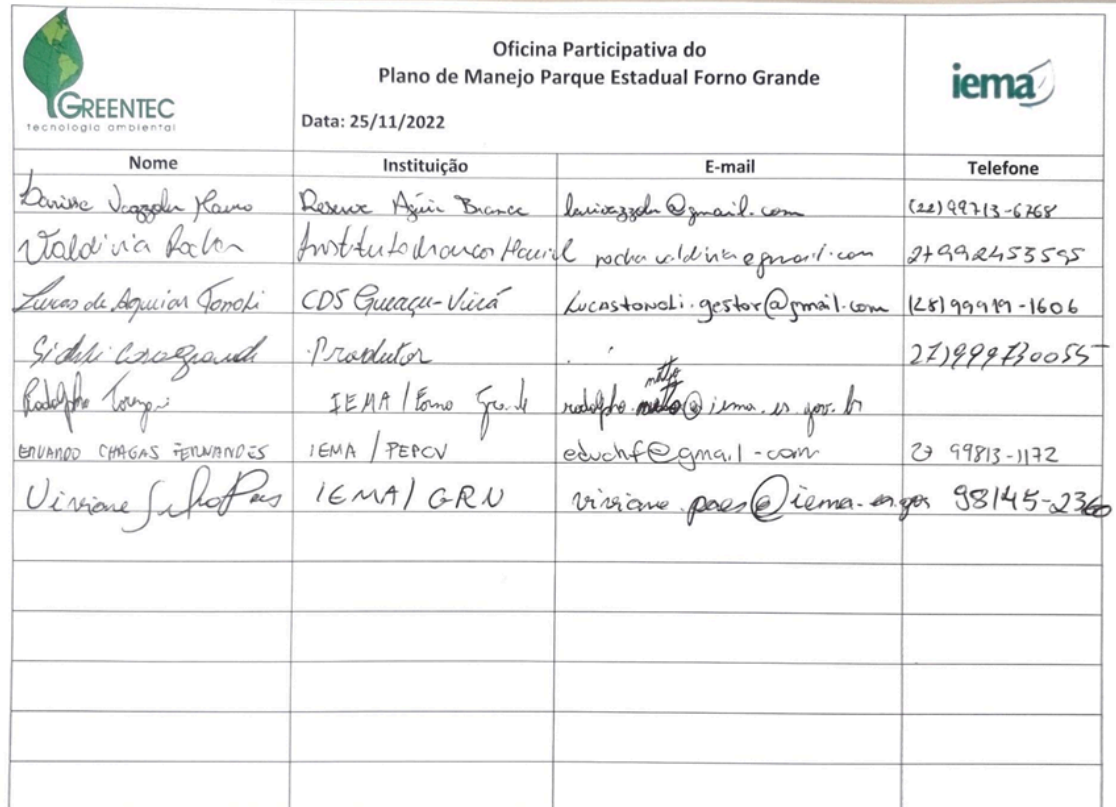 GREENTEC
tecnologia ambiental
Oficina Participativa do
Plano de Manejo Parque Estadual Forno Grande
Data: 25/11/2022
iema
Nome Instituição E-mail Telefone
Larisse Mauro Reserva Águia Branca @gmail.com (22)99713-6768
Valdivia Rocha Instituto Marcos rocha valdivia@gmail.com 27992453595
Lucas de Aguiar Tonoli CDS Guaçu-Virá lucastonoli.gestor@gmail.com (28)99919-1606
Produtor 27)999730055
Rodolpho IEMA / Forno Grande rodolpho @iema.es.gov.br
EDUARDO CHAGAS FERNANDES IEMA / PEPCV educhf@gmail-com 27 99813-1172
Viviane IEMA / GRN viviane.paes@iema.es.gov 98145-2360